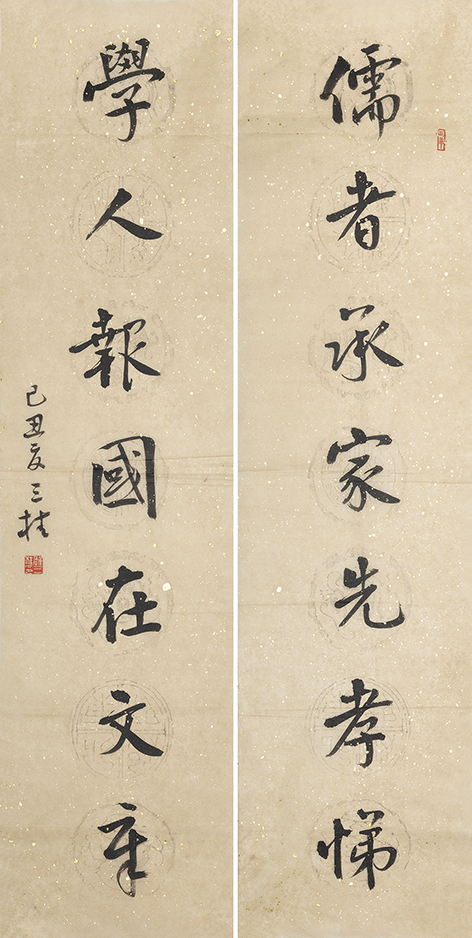 儒者承家先孝悌
學人報國在文章
己丑夏三桂